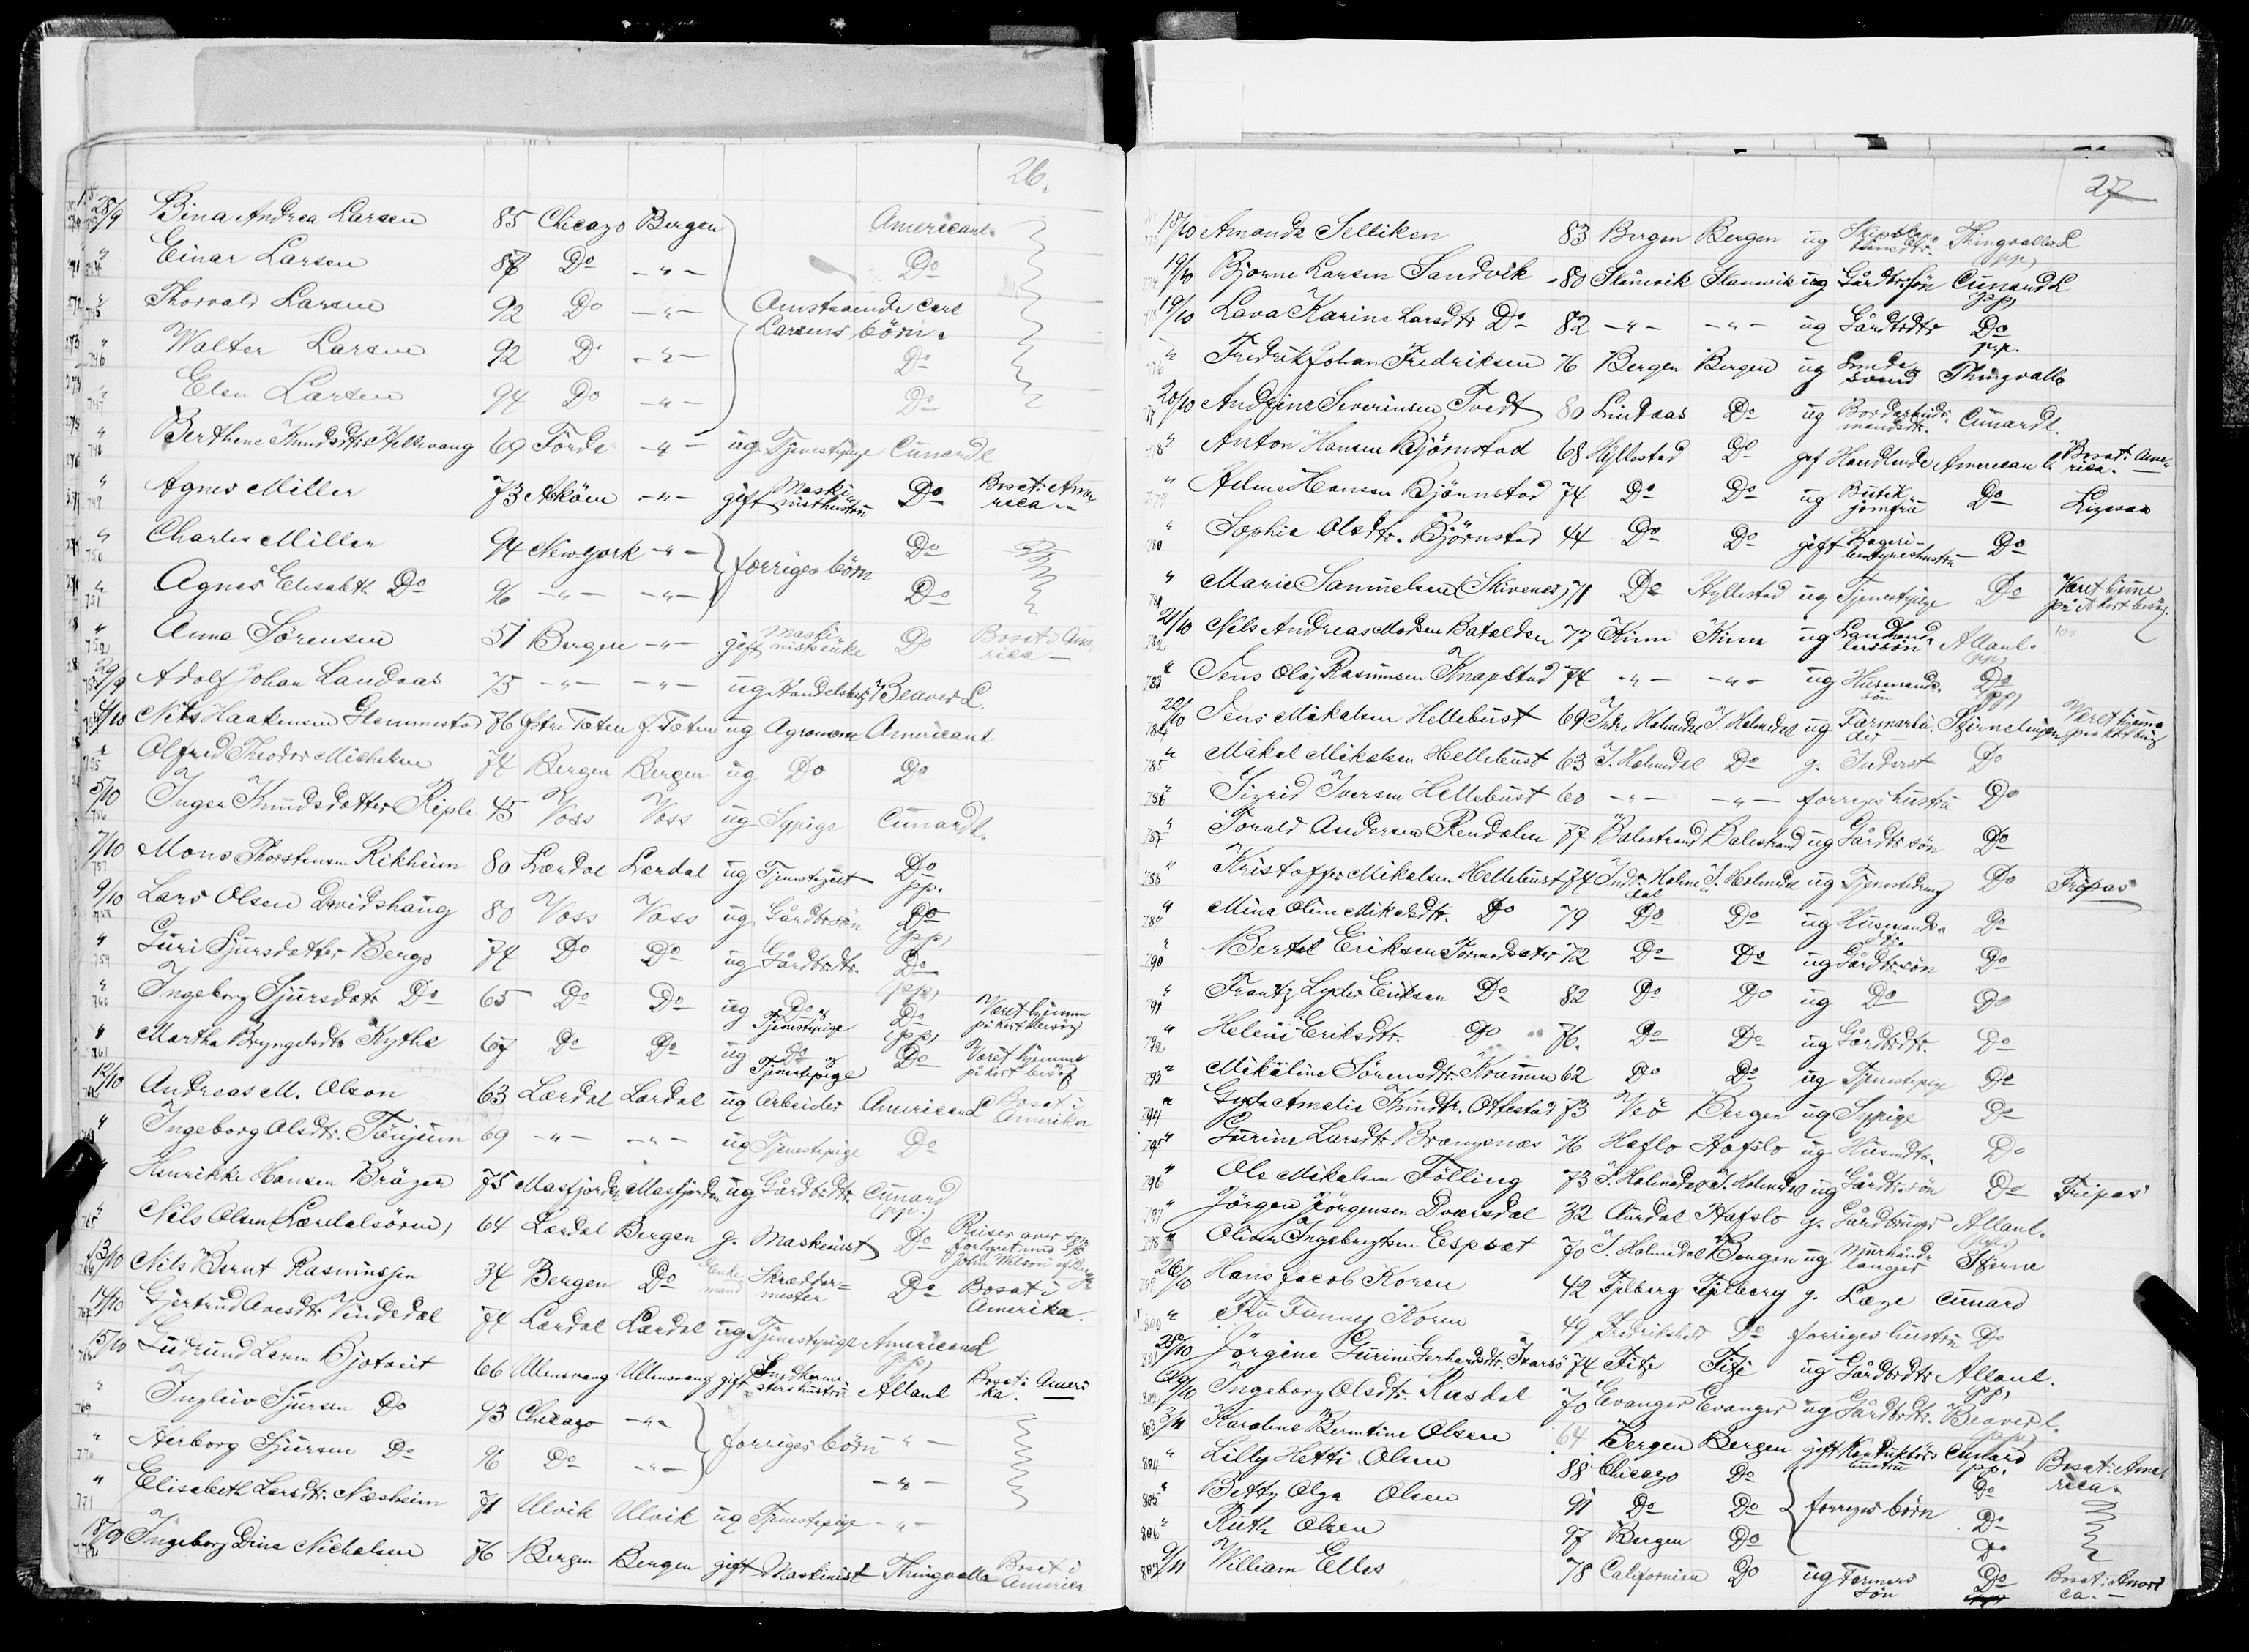 26.
28/9 Bina Andrea Larsen 85 Chicago Bergen Americanl.
" Einar Larsen 87 Do -"- Do
" Thorvald Larsen 92 Do -"- Omstaaende Carl
Larsens börn.
" Walter Larsen 92 Do -"- Do
" Elen Larsen 94 Do -"- Do
" Berthine Knudsdtr 69 Förde -"- ug Tjenestepige Cunardl
" Agnes Miller 73 Asköen -"- gift Maskinisthustru Do Bosat i Amerika
" Charles Miller 94 New-York -"- forriges börn Do
" Agnes Elisabeth Do 96 -"- -"- Do
" Anna Sörensen 51 Bergen -"- gift Do Bosat i America
29/9 Adolf Johan Landaas 75 -"- -"- ug Beaver L.
4/10 Nils Haakensen Glemmestad 76 Östre Toten Ö. Toten ug Agronom Americanl
" Olfred Theodor Michelsen 74 Bergen Bergen ug Do Do
5/10 Inger Knudsdatter Riple 45 Voss Voss ug Sypige Cunardl.
7/10 Mons Thorstensen Rikheim 80 Lærdal Lærdal ug Tjenestegut Do pp.
9/10 Lars Olsen Davidshaug 80 Voss Voss ug Gårdbr.sön Do (pp)
" Guri Sjursdatter Berge 74 Do Do ug Gårdbrdtr. Do (pp)
" Ingeborg Sjursdatr Do 65 Do Do ug Do & Tjenestepige Do (pp) Været hjemme på kort besög
" Martha Bryngelsdtr Kythe 67 Do Do ug Do og Tjenestepige Do Været hjemme på kort besög
12/10 Andreas M. Olson 63 Lærdal Lærdal ug Arbeider American L Bosat i Amerika
" Ingeborg Olsdtr. Tönjum 69 -"- -"- ug Tjenestepige Do
" Henrikke Hansen 75 Masfjorden Masfjorden ug Gårdbrdtr. Cunard (pp.)
" Nils Olsen (Lærdalsören) 64 Lærdal Bergen g. Maskinist Do Reiser over som forlyst med S/S John Wilson af Bergen
13/10 Nils Bernt Rasmussen 34 Bergen Do Enkemand Skræddermester Do Bosat i Amerika.
14/10 Gjertrud Vindedal 74 Lærdal Lærdal ug Tjenestepige American L (pp)
15/10 Gudrund Larsen Bjotveit 66 Ullensvang Ullensvang gift Allanl Bosat i Amerika.
" Ingleiv Sjursen Do 93 Chicago -"- forriges börn -"-
" Herborg Sjursen Do 96 Do -"- -"-
" Elisabeth Larsdtr. Næsheim 71 Ulvik Ulvik ug Tjenestepige -"-
18/10 Ingeborg Dina Nicholsen 76 Bergen Bergen gift Maskinist Thingvalla Bosat i America
27
18/10 Amanda Selliken 83 Bergen Bergen ug Thingvalla L (pp)
19/10 Bjorne Larsen Sandvik 80 Skånevik Skånevik ug Gårdbr.sön Cunard L (pp)
19/10 Lava Karine Larsdtr Do 82 -"- -"- ug Gårdbrdtr Do pp.
" Fredrik Johan Fredriksen 76 Bergen Bergen ug Smedesvend Thingvalla
20/10 Andrine Severinsen Tvedt 80 Lindaas Do ug Cunardl.
" Anton Hansen Björnstad 68 Hyllestad Do gift Handlende American L. Bosat i America.
" Helene Hansen Björnstad 74 Do Do ug Butikjomfru Do Ligesaa
" Sophie Olsdtr. Björnstad 44 Do Do gift Bageribestyrershustru Do
" Marie Samuelsen (Skivenes) 71 Do Hyllestad ug Tjenestepige Do Været hjemme på et kort besög.
21/10 Nils Andreas Madsen Batalden 77 Kinn Kinn ug Landhandlerssön Allanl. (pp)
" Jens Olaj Rasmussen Knapstad 74 -"- -"- ug Husmandssön Do (pp)
22/10 Jens Mikalsen Hellebust 69 Indre Holmedal I. Holmedal ug Farmarbeider Stjernelinjen Været hjemme på et kort besög
" Mikal Mikalsen Hellebust 63 I. Holmedal Do g. Inderst Do
" Sigrid Iversen Hellebust 60 -"- -"- forriges hustru Do
" Torald Andersen Rendalen 77 Balestrand Balestrand ug Gårdbr.sön Do
" Kristoffer Mikalsen Hellebust 74 Indr. Holmedal I. Holmedal ug Tjenestedreng Do Fripas
" Mina Oline Mikalsdtr. Do 79 Do Do ug Husmandsdtr. Do
" Bertel Eriksen 72 Do Do ug Gårdbr.sön Do
" Frantz Lyder Eriksen Do 82 Do Do ug Do Do
" Helene Eriksdtr. Do 76. Do Do ug Gårdbrdtr. Do
" Mikaline Sörensdtr. Kramen 62 Do Do ug Tjenestepige Do
" Gyda Amalie Knudtr. Offestad 73 Veö Bergen ug Sypige Do
" Gurine Larsdtr 76 Haflo Hafslo ug Husmdtr. Do
" Ole Mikalsen Fölling 73 I. Holmedal I. Holmedal ug Gårdbr.sön Do Fripas
" Jörgen Jörgensen Dværsdal 32 Aurdal Hafslo g. Gårdbruger Allanl. (pp)
" Oliver Ingebrigtsen Espset 70 I. Holmedal Bergen ug Murhåndlanger Stjerne
26/10 Hans Jacob Koren 42 Fjelberg Fjelberg g. Læge Cunard
" Fru Fanny Koren 49 Fredrikshald Do forriges hustru Do
28/10 Jörgine Gurine Gerhardsdtr. 74 Fitje Fitje ug Gårdbrdtr Allanl. (pp)
29/10 Ingeborg Olsdtr. Rasdal 70 Evanger Evanger ug Gårdbrdtr. Beaverl. (pp)
3/11 Karoline Berntine Olsen 64 Bergen Bergen gift Konduktörs hustru Cunard pp. Bosat i America.
" Lilly Hetti Olsen 88 Chicago Do Do
" Betty Olga Olsen 91 Do Do forriges börn Do
" Ruth Olsen 97 Bergen Do Do
9/11 William Elles 78 California Do ug Farmers sön Do Bosat i America.